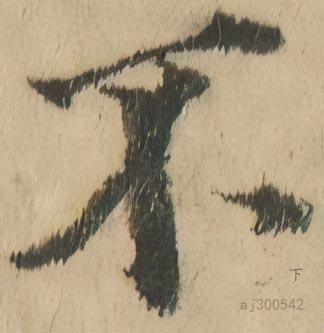 不
下
aj300542